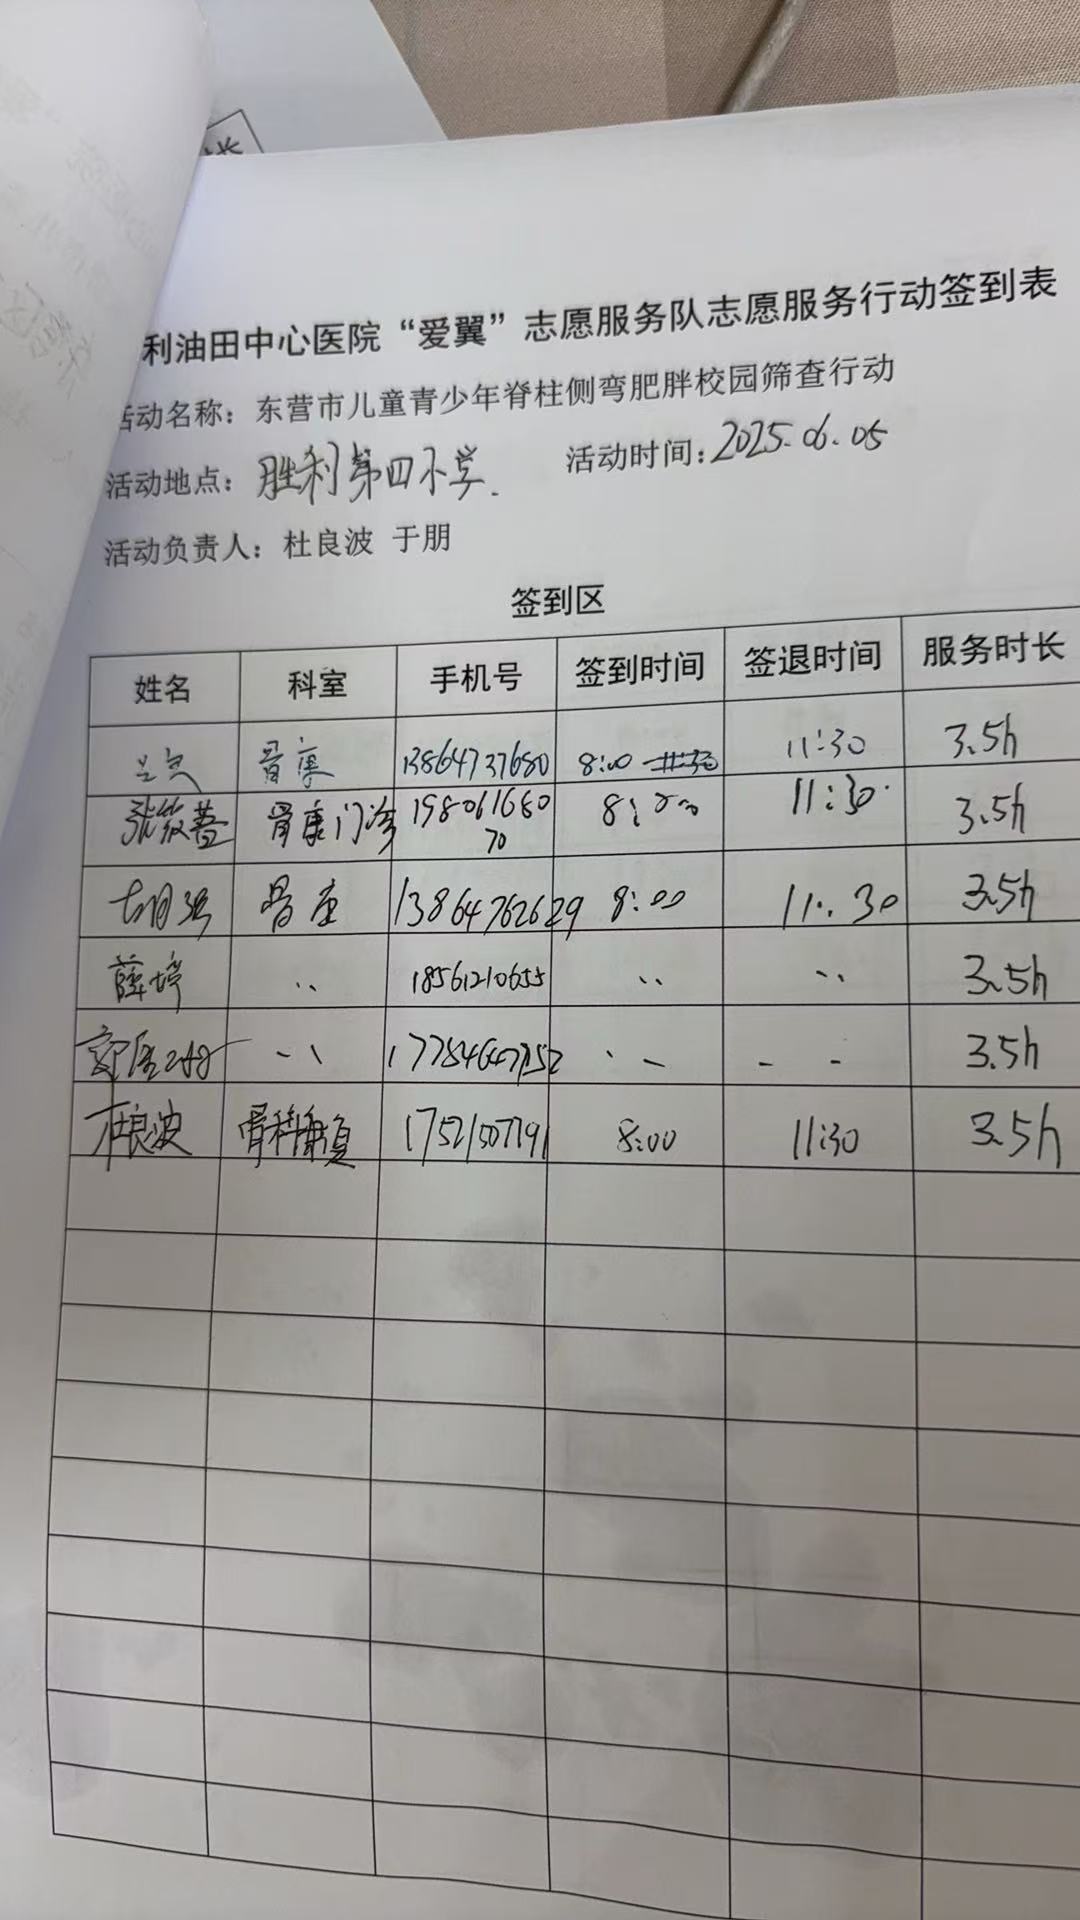 利油田中心医院“爱翼”志愿服务队志愿服务行动签到表
活动名称：东营市儿童青少年脊柱侧弯肥胖校园筛查行动
活动地点：胜利第四小学. 活动时间：2025.06.05
活动负责人：杜良波 于朋
签到区
姓名 科室 手机号 签到时间 签退时间 服务时长
骨康 13864737680 8:00 11:30 3.5h
骨康门诊 19806168070 8:00 11:30 3.5h
13864762629 8:00 11:30 3.5h
薛婷 18561210655 3.5h
3.5h
杜良波 骨科康复 17521507191 8:00 11:30 3.5h